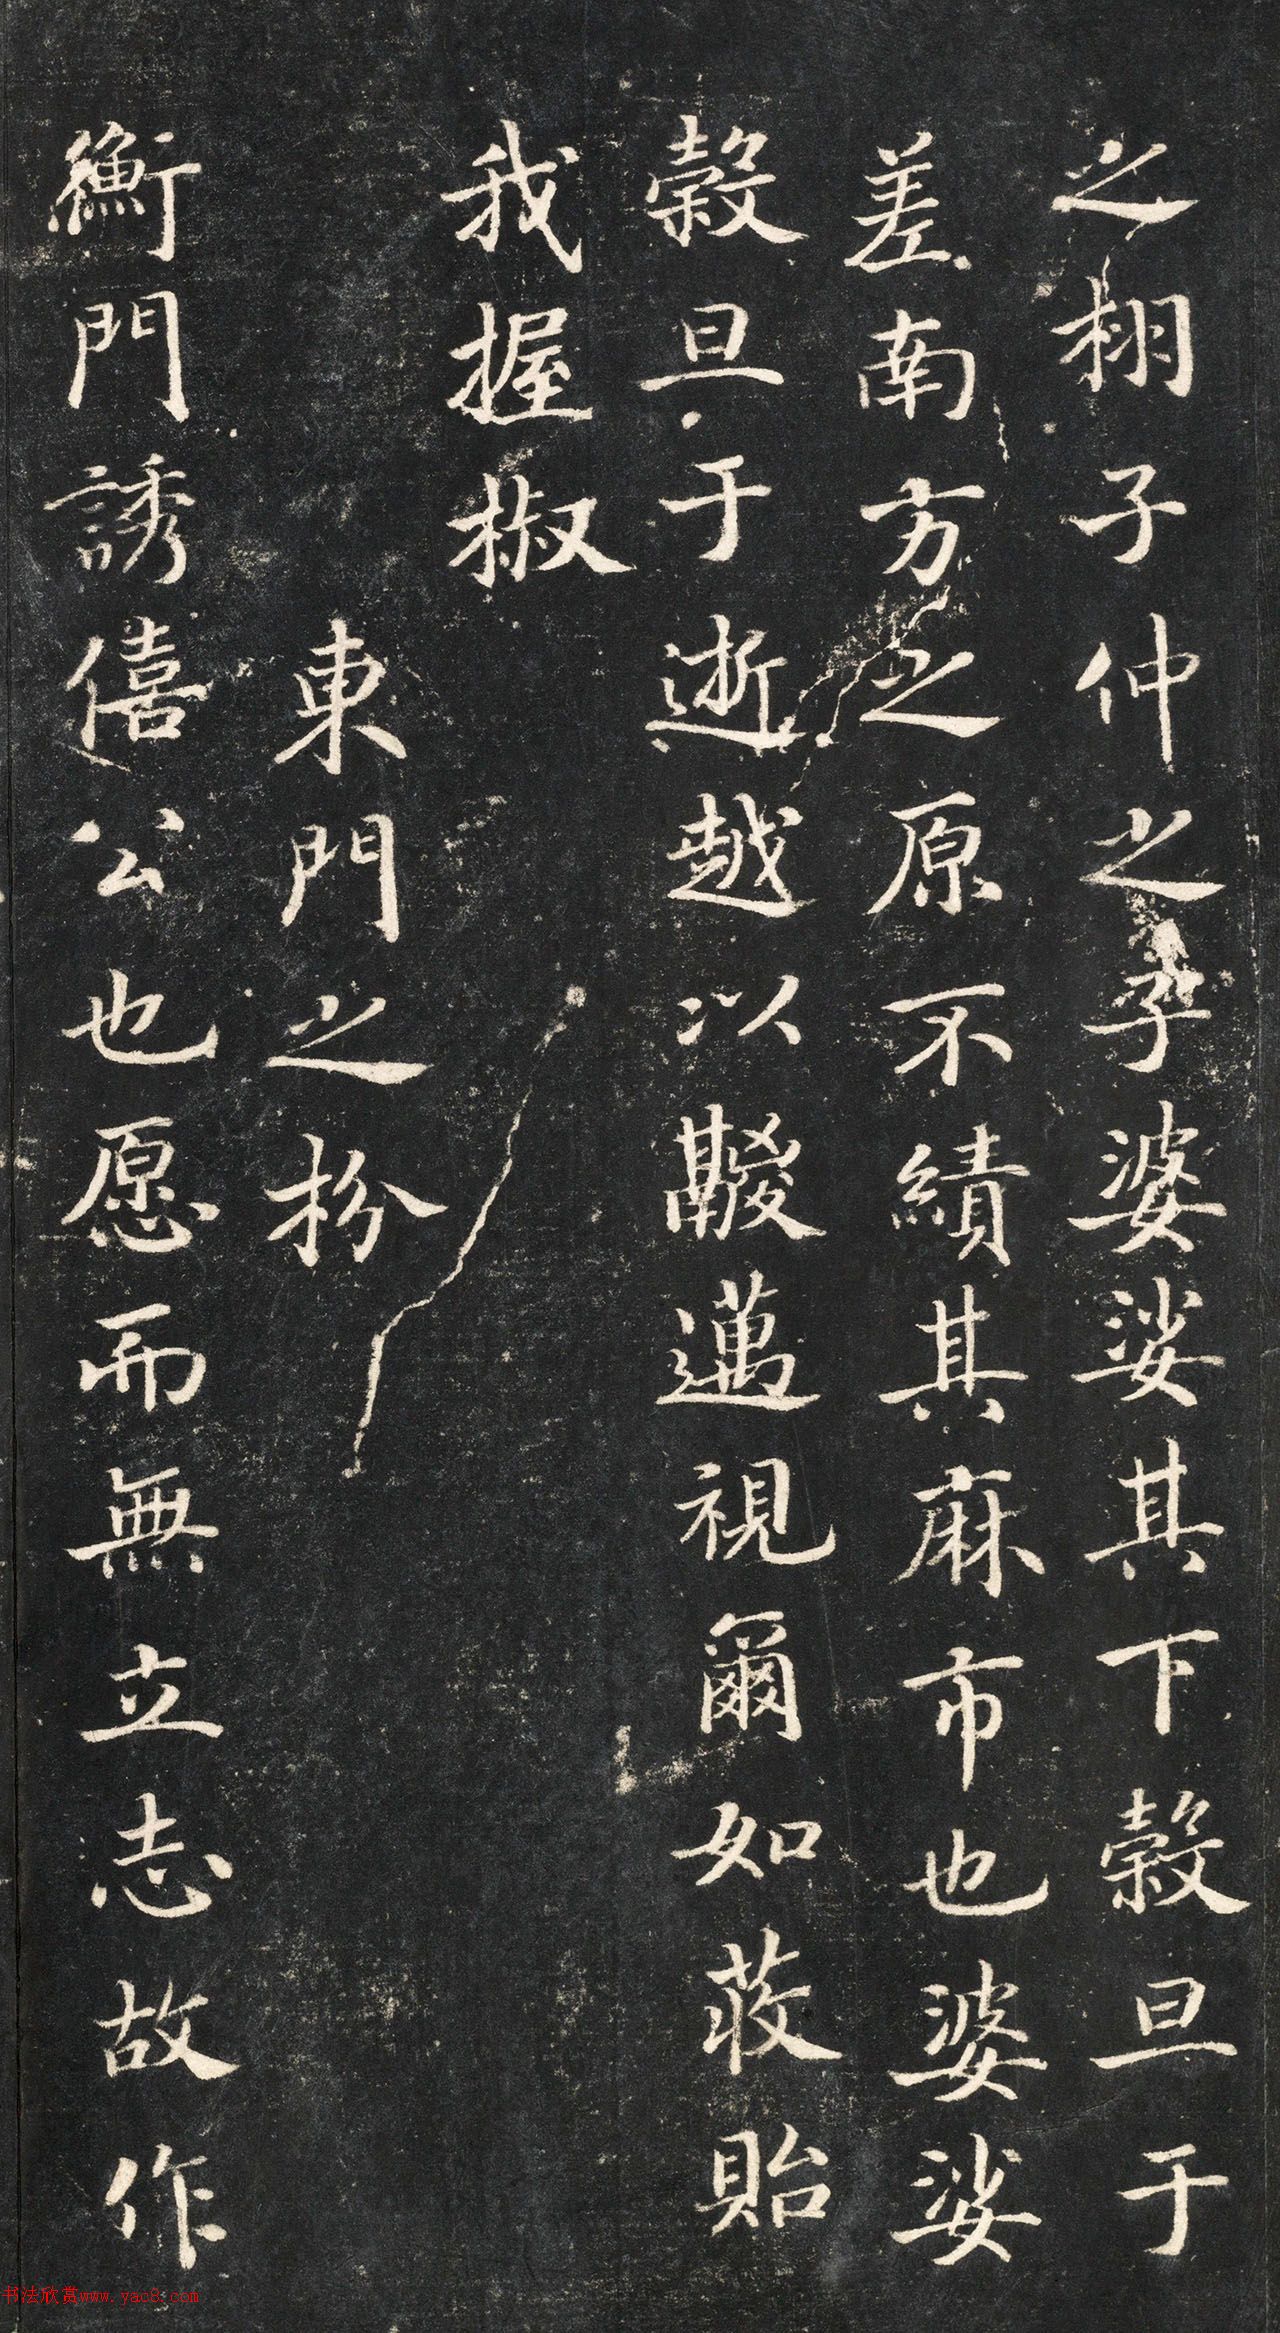 之栩子仲之子婆娑其下穀旦于
差南方之原不績其麻市也婆娑
穀旦于逝越以鬷邁視爾如荍貽
我握椒
東門之枌
衡門誘僖公也愿而無立志故作
书法欣赏www.yac8.com